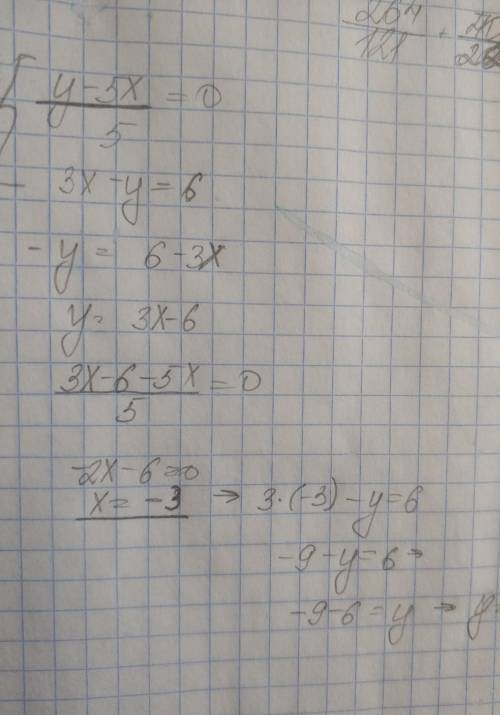 264/121 ·
{ (y-5x)/5 = 0
3x-y=6
-y= 6-3x
y= 3x-6
(3x-6-5x)/5 = 0
-2x-6=0
x= -3 → 3·(-3)-y=6
-9-y=6 →
-9-6=y → y